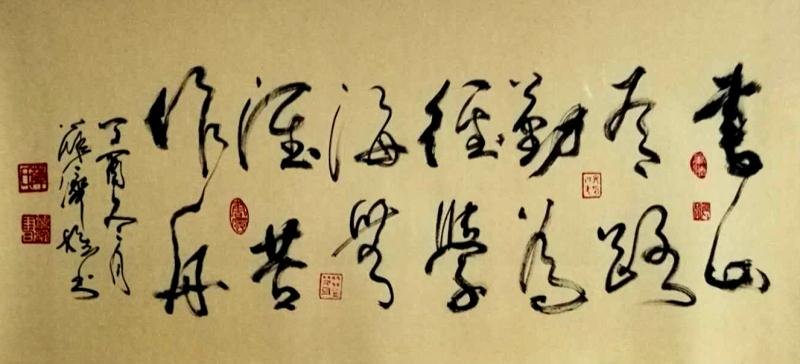 書山
有路
勤為
徑學
海無
涯苦
作舟
丁酉冬月
書